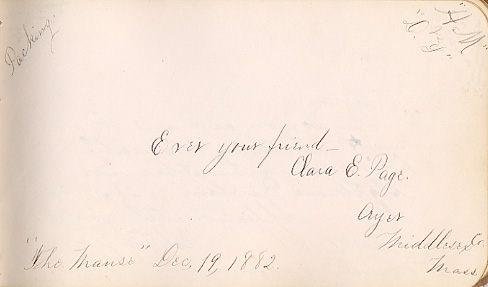 Packing.
"H. M"
Ever your friend—
Clara E. Page.
Ayer
Middlesex Co.
Mass.
"The Manse" Dec. 19, 1882.